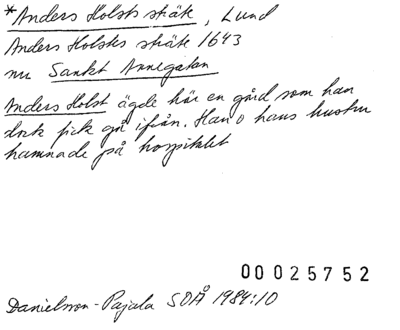 *Anders Holsts sträte, Lund
Anders Holstes sträte 1643
nu Sankt Annegatan
Anders Holst ägde här en gård som han
dock fick gå ifrån. Han o hans hustru
hamnade på hospitalet
00025752
Danielsson-Pajala SOÅ 1984:10